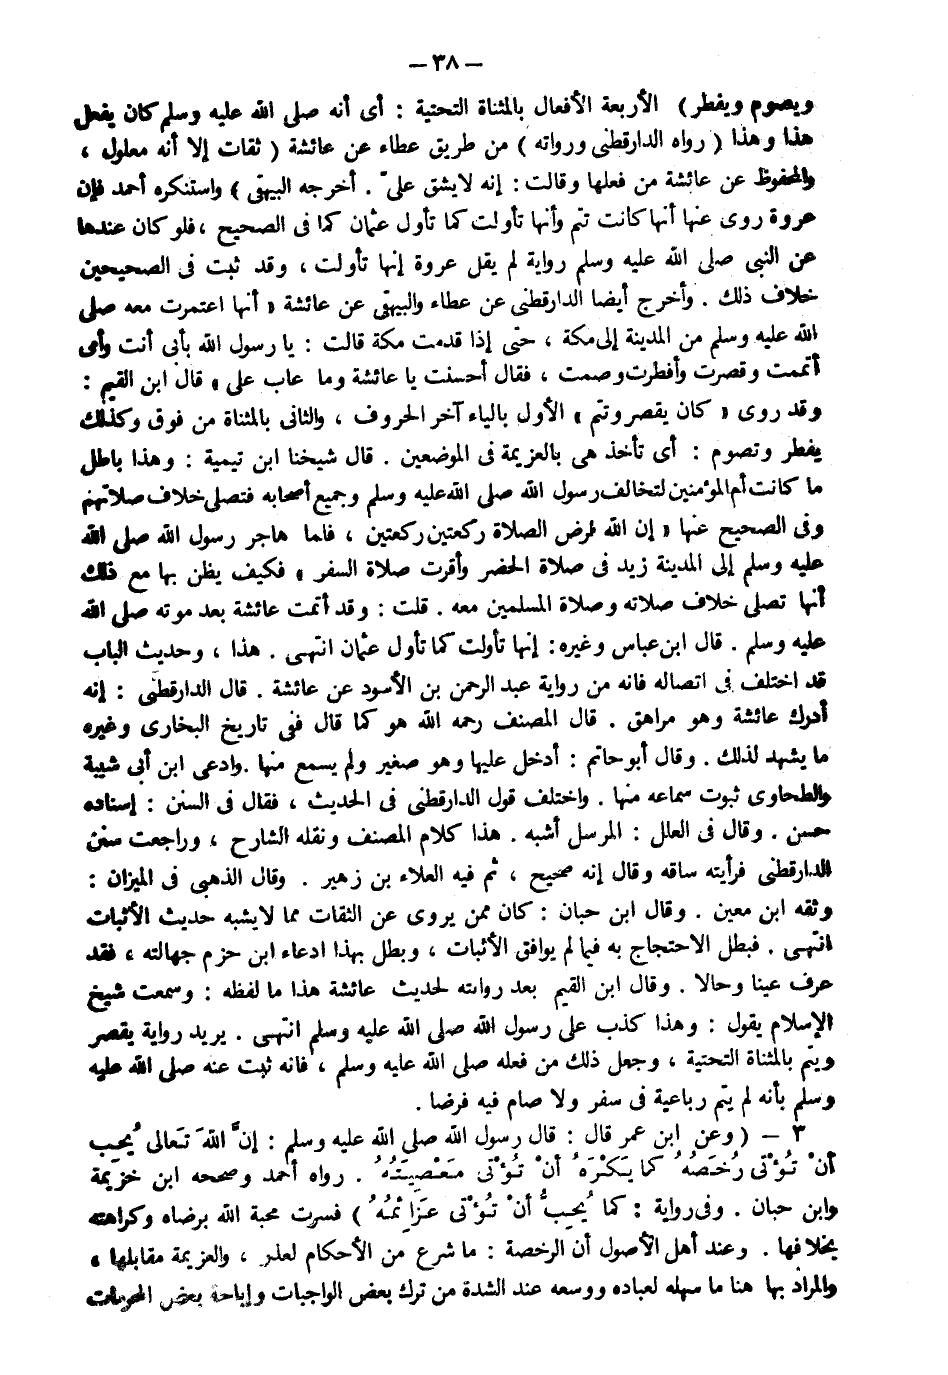 — ٣٨ —
ويصوم ويفطر) الأربعة الأفعال بالمثناة التحتية : أى أنه صلى الله عليه وسلم كان يفعل
هذا وهذا ( رواه الدارقطنى ورواته ) من طريق عطاء عن عائشة ( ثقات إلا أنه معلول ،
والمحفوظ عن عائشة من فعلها وقالت : إنه لايشق علىّ . أخرجه البيهقى ) واستنكره أحمد فإن
عروة روى عنها أنها كانت تتم وأنها تأولت كما تأول عثمان كما فى الصحيح ، فلو كان عندها
عن النبى صلى الله عليه وسلم رواية لم يقل عروة إنها تأولت ، وقد ثبت فى الصحيحين
خلاف ذلك . وأخرج أيضا الدارقطنى عن عطاء والبيهقى عن عائشة « أنها اعتمرت معه صلى
الله عليه وسلم من المدينة إلى مكة ، حتى إذا قدمت مكة قالت : يا رسول الله بأبى أنت وأمى
أتممت وقصرت وأفطرت وصمت ، فقال أحسنت يا عائشة وما عاب على » قال ابن القيم :
وقد روى « كان يقصر وتتم » الأول بالياء آخر الحروف ، والثانى بالمثناة من فوق وكذلك
يفطر وتصوم : أى تأخذ هى بالعزيمة فى الموضعين . قال شيخنا ابن تيمية : وهذا باطل
ما كانت أم المؤمنين لتخالف رسول الله صلى الله عليه وسلم وجميع أصحابه فتصلى خلاف صلاتهم
وفى الصحيح عنها « إن الله فرض الصلاة ركعتين ركعتين ، فلما هاجر رسول الله صلى الله
عليه وسلم إلى المدينة زيد فى صلاة الحضر وأقرت صلاة السفر » فكيف يظن بها مع ذلك
أنها تصلى خلاف صلاته وصلاة المسلمين معه . قلت : وقد أتمت عائشة بعد موته صلى الله
عليه وسلم . قال ابن عباس وغيره : إنها تأولت كما تأول عثمان انتهـى . هذا ، وحديث الباب
قد اختلف فى اتصاله فانه من رواية عبد الرحمن بن الأسود عن عائشة . قال الدارقطنى : إنه
أدرك عائشة وهو مراهق . قال المصنف رحمه الله هو كما قال ففى تاريخ البخارى وغيره
ما يشهد لذلك . وقال أبو حاتم : أدخل عليها وهو صغير ولم يسمع منها . وادعى ابن أبى شيبة
والطحاوى ثبوت سماعه منها . واختلف قول الدارقطنى فى الحديث ، فقال فى السنن : إسناده
حسن . وقال فى العلل : المرسل أشبه . هذا كلام المصنف ونقله الشارح ، وراجعت سنن
الدارقطنى فرأيته ساقه وقال إنه صحيح ، ثم فيه العلاء بن زهير . وقال الذهبى فى الميزان :
وثقه ابن معين . وقال ابن حبان : كان ممن يروى عن الثقات مما لايشبه حديث الأثبات
انتهـى . فبطل الاحتجاج به فيما لم يوافق الأثبات ، وبطل بهذا ادعاء ابن حزم جهالته ، فقد
عرف عينا وحالا . وقال ابن القيم بعد روايته لحديث عائشة هذا ما لفظه : وسمعت شيخ
الإسلام يقول : وهذا كذب على رسول الله صلى الله عليه وسلم انتهـى . يريد رواية يقصر
ويتم بالمثناة التحتية ، وجعل ذلك من فعله صلى الله عليه وسلم ، فانه ثبت عنه صلى الله عليه
وسلم بأنه لم يتم رباعية فى سفر ولا صام فيه فرضا .
٣ — ( وعن ابن عمر قال : قال رسول الله صلى الله عليه وسلم : إنَّ اللهَ تَعالى يُحِب
أنْ تُؤْتى رُخَصُهُ كما يَكْرَهُ أنْ تُؤْتى مَعْصِيَتُهُ . رواه أحمد وصححه ابن خزيمة
وابن حبان . وفى رواية : كما يُحِبُّ أنْ تُؤْتى عَزَائمُهُ ) فسرت محبة الله برضاه وكراهته
بخلافها . وعند أهل الأصول أن الرخصة : ما شرع من الأحكام لعذر ، والعزيمة مقابلها ،
والمراد بها هنا ما سهله لعباده ووسعه عند الشدة من ترك بعض الواجبات وإباحة بعض المحرمات